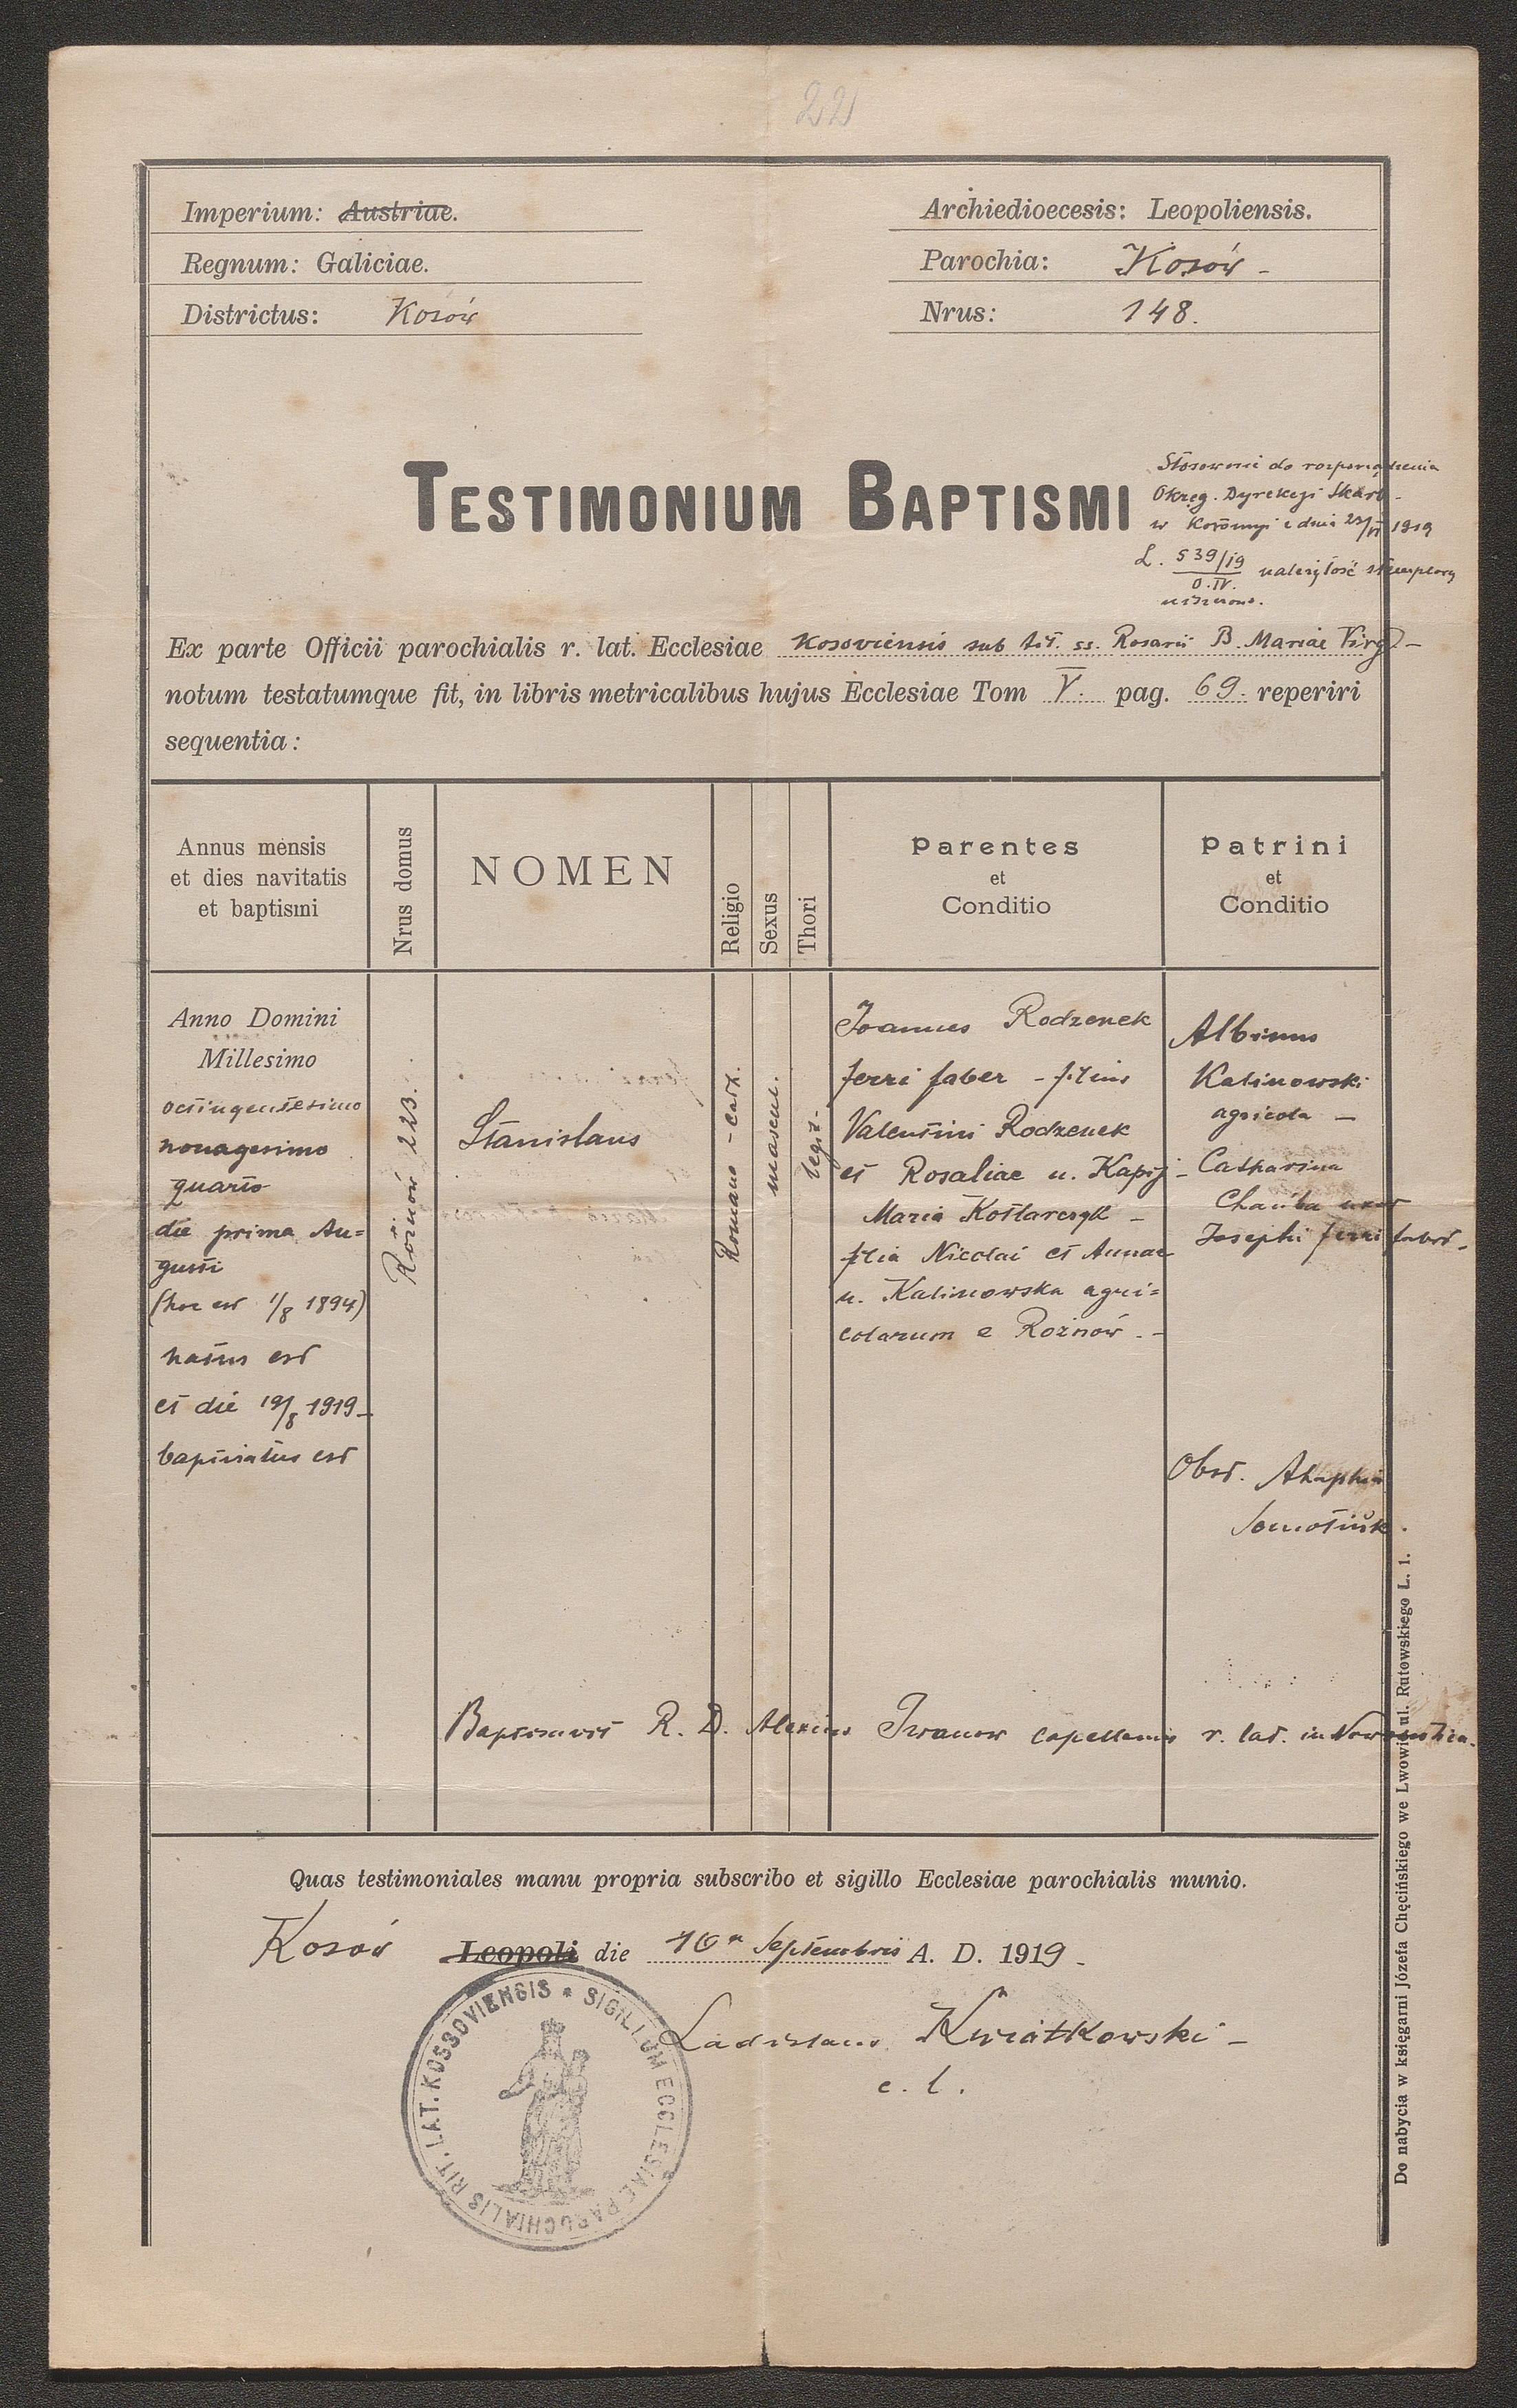 22
Imperium: Austriae.
Regnum: Galiciae.
Districtus: Kosów
Archiedioecesis: Leopoliensis.
Parochia: Kosów -
Nrus: 148.
TESTIMONIUM BAPTISMI
Stosownie do rozporządzenia
Okręg. Dyrekcyi Skarb-
w Kołomyi z dnia 23/VI 1919
L. 539/19
O.IV.
należytość stemplową
uiszczono.
Ex parte Officii parochialis r. lat. Ecclesiae Kosoviensis sub tit. ss. Rosarii B. Mariae Virg -
notum testatumque fit, in libris metricalibus hujus Ecclesiae Tom V. pag. 69. reperiri
sequentia:
Annus mensis
et dies navitatis
et baptismi
Nrus domus
NOMEN
Religio
Sexus
Thori
Parentes
et
Conditio
Patrini
et
Conditio
Anno Domini
Millesimo
octingentesimo
nonagesimo
quarto
die prima Au=
gusti
(hoc est 1/8 1894)
natus est
et die 19/8 1919 -
baptisatus est
Rożnów 223.
Stanislaus
Romano - cath.
mascul.
legit-
Joannes Rodzenek
ferri faber - filius
Valentini Rodzenek
et Rosaliae n. Kapij -
Maria Kotlarczyk -
filia Nicolai et Annae
n. Kalinowska agri=
colarum e Rożnów. -
Albinus
Kalinowski
agricola -
Catharina
uxor
Josephi ferri fabri.
Obst. Ahaphia
Baptisavit R. D. Alexius Iwanow capellanus r. lat. in
Quas testimoniales manu propria subscribo et sigillo Ecclesiae parochialis munio.
Kosów Leopoli die 10a Septembris A. D. 1919 -
Ladislaus Kwiatkowski -
c. l.
SIGILLUM ECCLESIAE PAROCHIALIS RIT. LAT. KOSSOVIENSIS *
Do nabycia w księgarni Józefa Chęcińskiego we Lwowie ul. Rutowskiego L. 1.